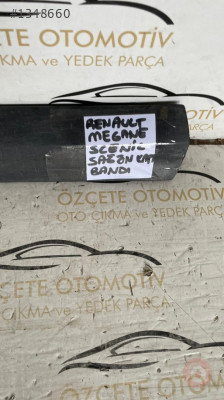 #1348660
ÖZÇETE OTOMOTİV
OTO ÇIKMA ve YEDEK PARÇA
RENAULT
MEGANE
SCENIC
BANDI
ÖZÇETE OTOMOTİV
OTO ÇIKMA ve YEDEK PARÇA
ÖZÇETE OTOMOTİV
OTO ÇIKMA ve YEDEK PARÇA